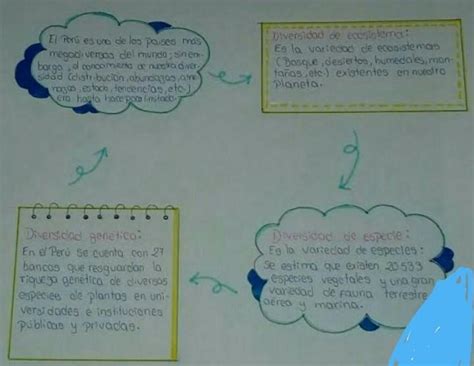 El Perú es uno de los países más
megadiversos del mundo; sin em-
bargo, el conocimiento de nuestra diver-
sidad (distribución, abundancia,
estado, tendencias, etc.)
era hasta hace poco limitado.
Diversidad de ecosistema:
Es la variedad de ecosistemas
(Bosque, desiertos, humedales, mon-
tañas, etc.) existentes en nuestro
planeta.
Diversidad de especie:
Es la variedad de especies:
Se estima que existen 20 533
especies vegetales y una gran
variedad de fauna terrestre
aérea y marina.
Diversidad genética:
En el Perú se cuenta con 27
bancos que resguardan la
riqueza genética de diversos
especies de plantas en uni-
versidades e instituciones
públicas y privadas.